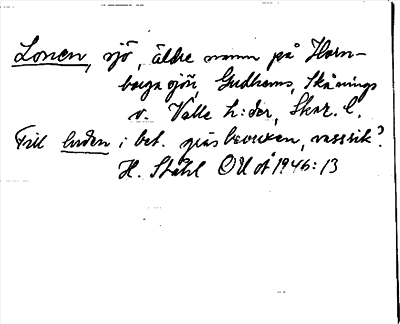 Lonen, sjö, äldre namn på Horn-
borgasjön, Gudhems, Skånings
o. Valle h:der, Skar. l.
Till luden i bet. gräsbevuxen, vassrik?
H. Ståhl OUÅ 1946:13